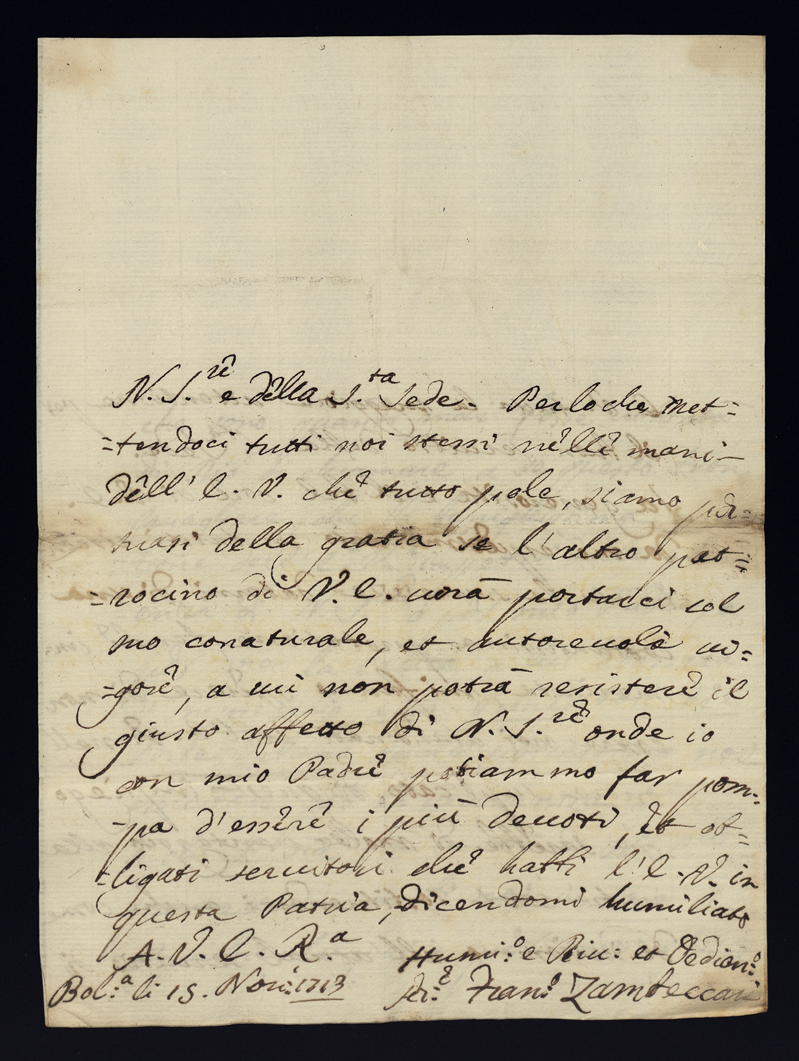 N. S.re e della S.ta Sede. Perloche met=
=tendoci tutti noi stessi nelle mani
dell' E. V. che tutto pole, siamo per=
suasi della gratia se l'altro pat=
=rocino di V. E. vorà portarci col
mo conaturale, et autorevole vi=
=gore, a cui non potrà resistere il
giusto affetto di N. S.re onde io
con mio Padre potiammo far pom=
=pa d'essere i più devoti, et ob=
=ligati servitori che habbi l'E. V. in
questa Patria, dicendomi humiliato
A. V. E. R.a Humi:o e Riu: et
Bol:a li 15. Nov:e 1713 Fran:o Zambeccari